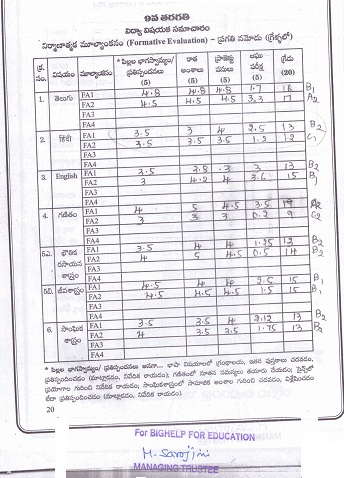 9వ తరగతి
విద్యా విషయక సమాచారం
నిర్మాణాత్మక మూల్యాంకనం (Formative Evaluation) - ప్రగతి నమోదు (గ్రేడ్లలో)
క్ర. సం. విషయం మూల్యాంకనం * పిల్లల భాగస్వామ్యం/ ప్రతిస్పందనలు (5) రాత అంశాలు (5) ప్రాజెక్టు పనులు (5) లఘు పరీక్ష (5) గ్రేడు (20)
1. తెలుగు FA1 4.8 4.8 4.8 1.7 16 B1
FA2 4.5 4.5 4.5 3.3 17 A2
FA3
FA4
2. हिंदी FA1 3.5 3 4 2.5 13 B2
FA2 3.5 3.5 3.5 1.2 12 C1
FA3
FA4
3. English FA1 3.5 3.8 3 3 13 B2
FA2 3 4.2 4 3.6 15 B1
FA3
FA4
4. గణితం FA1 4 5 4.5 3.5 A2
FA2 3 3 3 0.2 9 C2
FA3
FA4
5ఎ. భౌతిక రసాయన శాస్త్రం FA1 3.5 4 4 1.25 B2
FA2 4 5 4.5 0.5 14 B2
FA3
FA4
5బి. జీవశాస్త్రం FA1 4.5 4 4 2.5 15 B1
FA2 4.5 4.5 4.5 1.5 15 B1
FA3
FA4
6. సాంఘిక శాస్త్రం FA1 3.5 3.5 4 2.12 13 B2
FA2 4 3.5 3.5 1.75 13 B2
FA3
FA4
* పిల్లల భాగస్వామ్యం/ ప్రతిస్పందనలు అనగా... భాషా విషయాలలో గ్రంథాలయ, ఇతర పుస్తకాలు చదవడం,
ప్రతిస్పందించడం (మాట్లాడడం, నివేదిక రాయడం); గణితంలో నూతన సమస్యలు తయారు చేయడం; సైన్స్‌లో
ప్రయోగాల గురించి నివేదిక రాయడం; సాంఘికశాస్త్రంలో సామాజిక అంశాల గురించి చదవడం, విశ్లేషించడం
లేదా ప్రతిస్పందించడం (మాట్లాడడం, నివేదిక రాయడం).
20
For BIGHELP FOR EDUCATION
M. Sarojini
MANAGING TRUSTEE